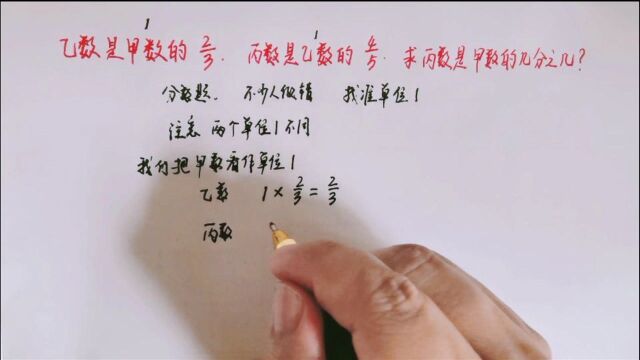 1 1
乙数是甲数的 2/3. 丙数是乙数的 4/5. 求丙数是甲数的几分之几?
分数题. 不少人做错 找准单位1
注意 两个单位1不同
我们把甲数看作单位1
乙数 1 × 2/3 = 2/3
丙数